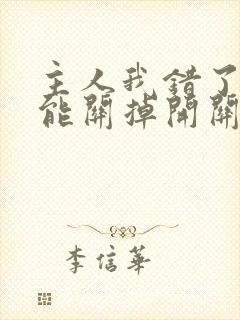 主人我错了
能關掉開關
李信華